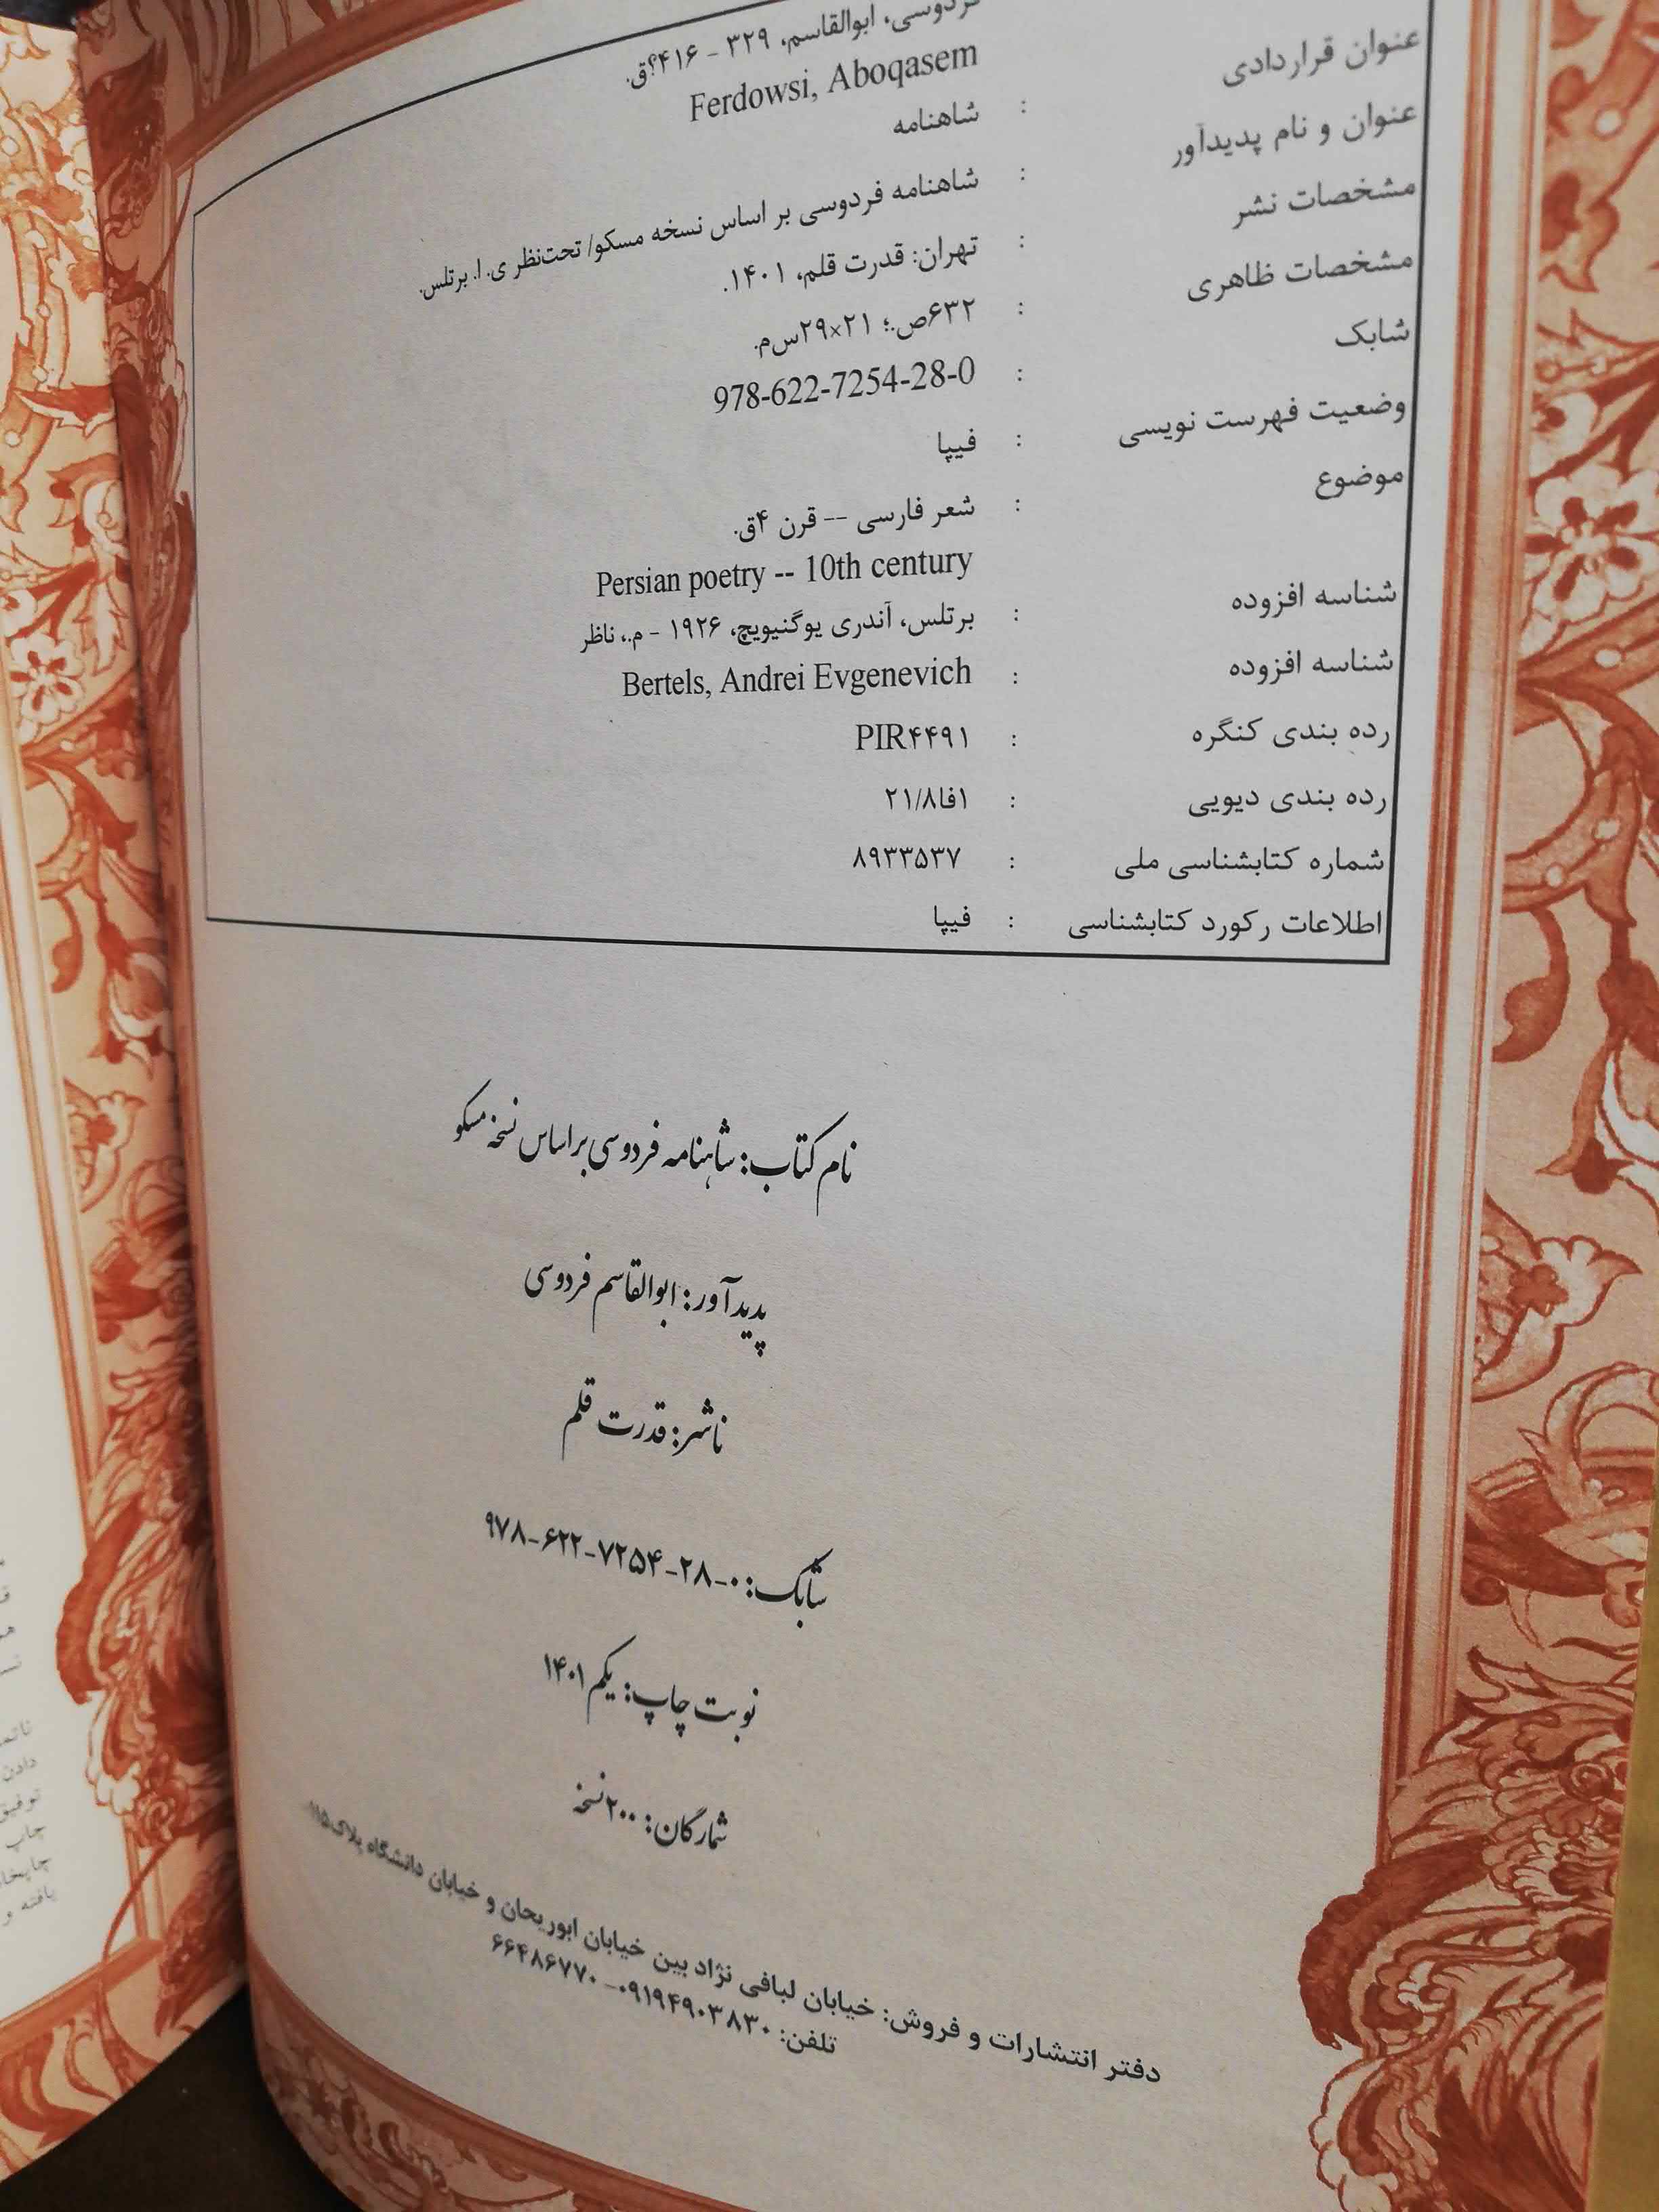 فردوسی، ابوالقاسم، ۳۲۹ - ۴۱۶؟ق.
Ferdowsi, Aboqasem
عنوان قراردادی : شاهنامه
عنوان و نام پدیدآور : شاهنامه فردوسی بر اساس نسخه مسکو/ تحت‌نظر ی. ا. برتلس.
مشخصات نشر : تهران: قدرت قلم، ۱۴۰۱.
مشخصات ظاهری : ۶۳۲ص.؛ ۲۱×۲۹س‌م.
شابک : 978-622-7254-28-0
وضعیت فهرست نویسی : فیپا
موضوع : شعر فارسی -- قرن ۴ق.
Persian poetry -- 10th century
شناسه افزوده : برتلس، آندری یوگنیویچ، ۱۹۲۶ - م.، ناظر
شناسه افزوده : Bertels, Andrei Evgenevich
رده بندی کنگره : PIR۴۴۹۱
رده بندی دیویی : ۱فا۲۱/۸
شماره کتابشناسی ملی : ۸۹۳۳۵۳۷
اطلاعات رکورد کتابشناسی : فیپا
نام کتاب: شاهنامه فردوسی بر اساس نسخه مسکو
پدیدآور: ابوالقاسم فردوسی
ناشر: قدرت قلم
شابک: ۰-۲۸-۷۲۵۴-۶۲۲-۹۷۸
نوبت چاپ: یکم ۱۴۰۱
شمارگان: ۲۰۰ نسخه
دفتر انتشارات و فروش: خیابان لبافی نژاد بین خیابان ابوریحان و خیابان دانشگاه پلاک
تلفن: ۰۹۱۹۴۹۰۳۸۳۰- ۶۶۴۸۶۷۷۰
دادن
توفیق
چاپ
یافته و